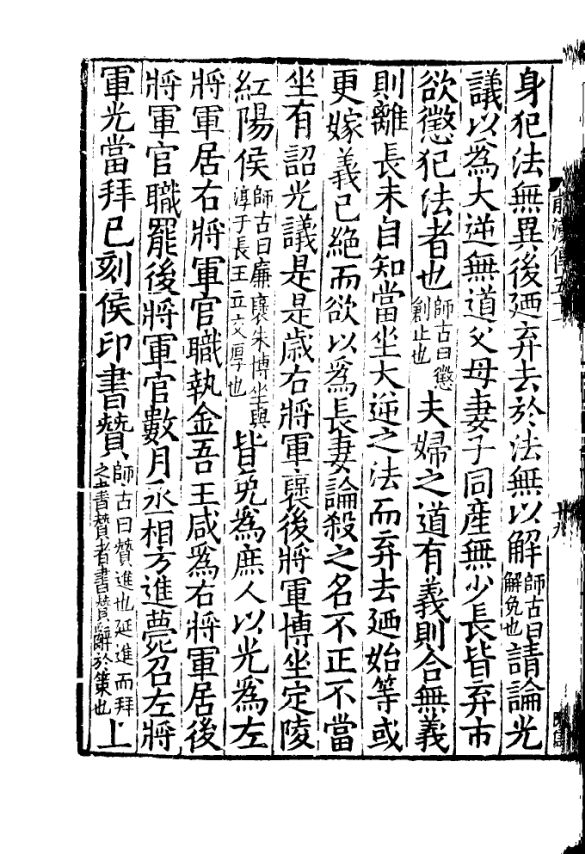 身犯法無異後廼弃去於法無以解師古曰解免也請論光
議以爲大逆無道父母妻子同産無少長皆弃市
欲懲犯法者也師古曰懲創止也夫婦之道有義則合無義
則離長未自知當坐大逆之法而弃去廼始等或
更嫁義已絶而欲以爲長妻論殺之名不正不當
坐有詔光議是是歳右將軍襃後將軍博坐定陵
紅陽侯師古曰廉襃朱博坐與淳于長王立交厚也皆免爲庶人以光爲左
將軍居右將軍官職執金吾王咸爲右將軍居後
將軍官職罷後將軍官數月丞相方進薨召左將
軍光當拜已刻侯印書贊師古曰贊進也延進而拜之書贊者書贊辭於策也上